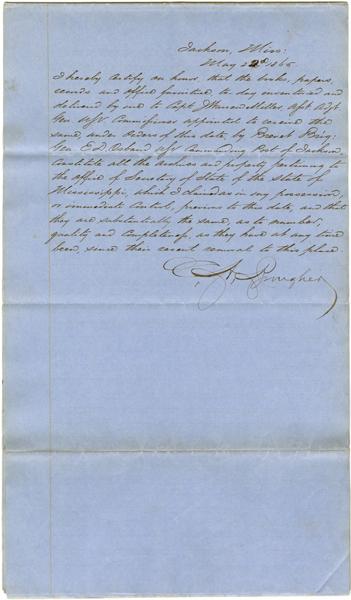 Jackson, Miss:
May 22d 1865
I hereby certify on honor that the books, papers,
records and office furniture to day inventoried and
delivered by me to Capt J Warren Miller Asst Adjt
Gen USV. Commissioner appointed to receive the
same, under orders of this date by Brevet Brig:
Gen E D Osband USV Commanding Post of Jackson,
Constitute all the archives and property pertaining to
the office of Secretary of State of the State of
Mississippi, which I had in my possession,
or immediate control, previous to this date, and that
they are substantially the same, as to number,
quality and completeness, as they have at any time
been, since their recent removal to this place.
C. A. Brougher